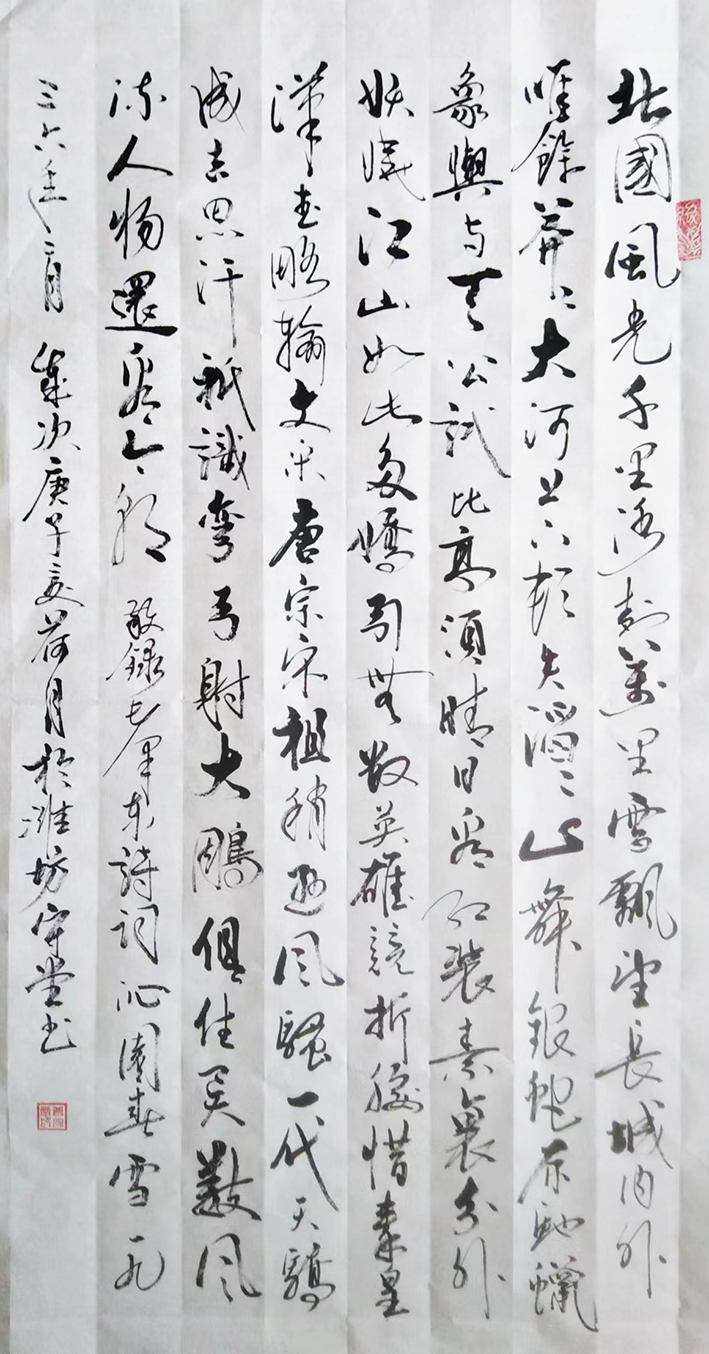 北國風光千里冰封萬里雪飄望長城内外
唯餘莽〻大河上下頓失滔〻山舞銀蛇原馳蠟
象與与天公試比高須晴日看紅裝素裹分外
妖嬈江山如此多嬌引無數英雄競折腰惜秦皇
漢武略輸文采唐宗宋祖稍遜風騷一代天驕
成吉思汗祇識彎弓射大鵰俱往矣數風
流人物還看今朝 敬録毛澤東詩詞沁園春雪一九
三六年二月 歲次庚子夏荷月於濰坊守堂书